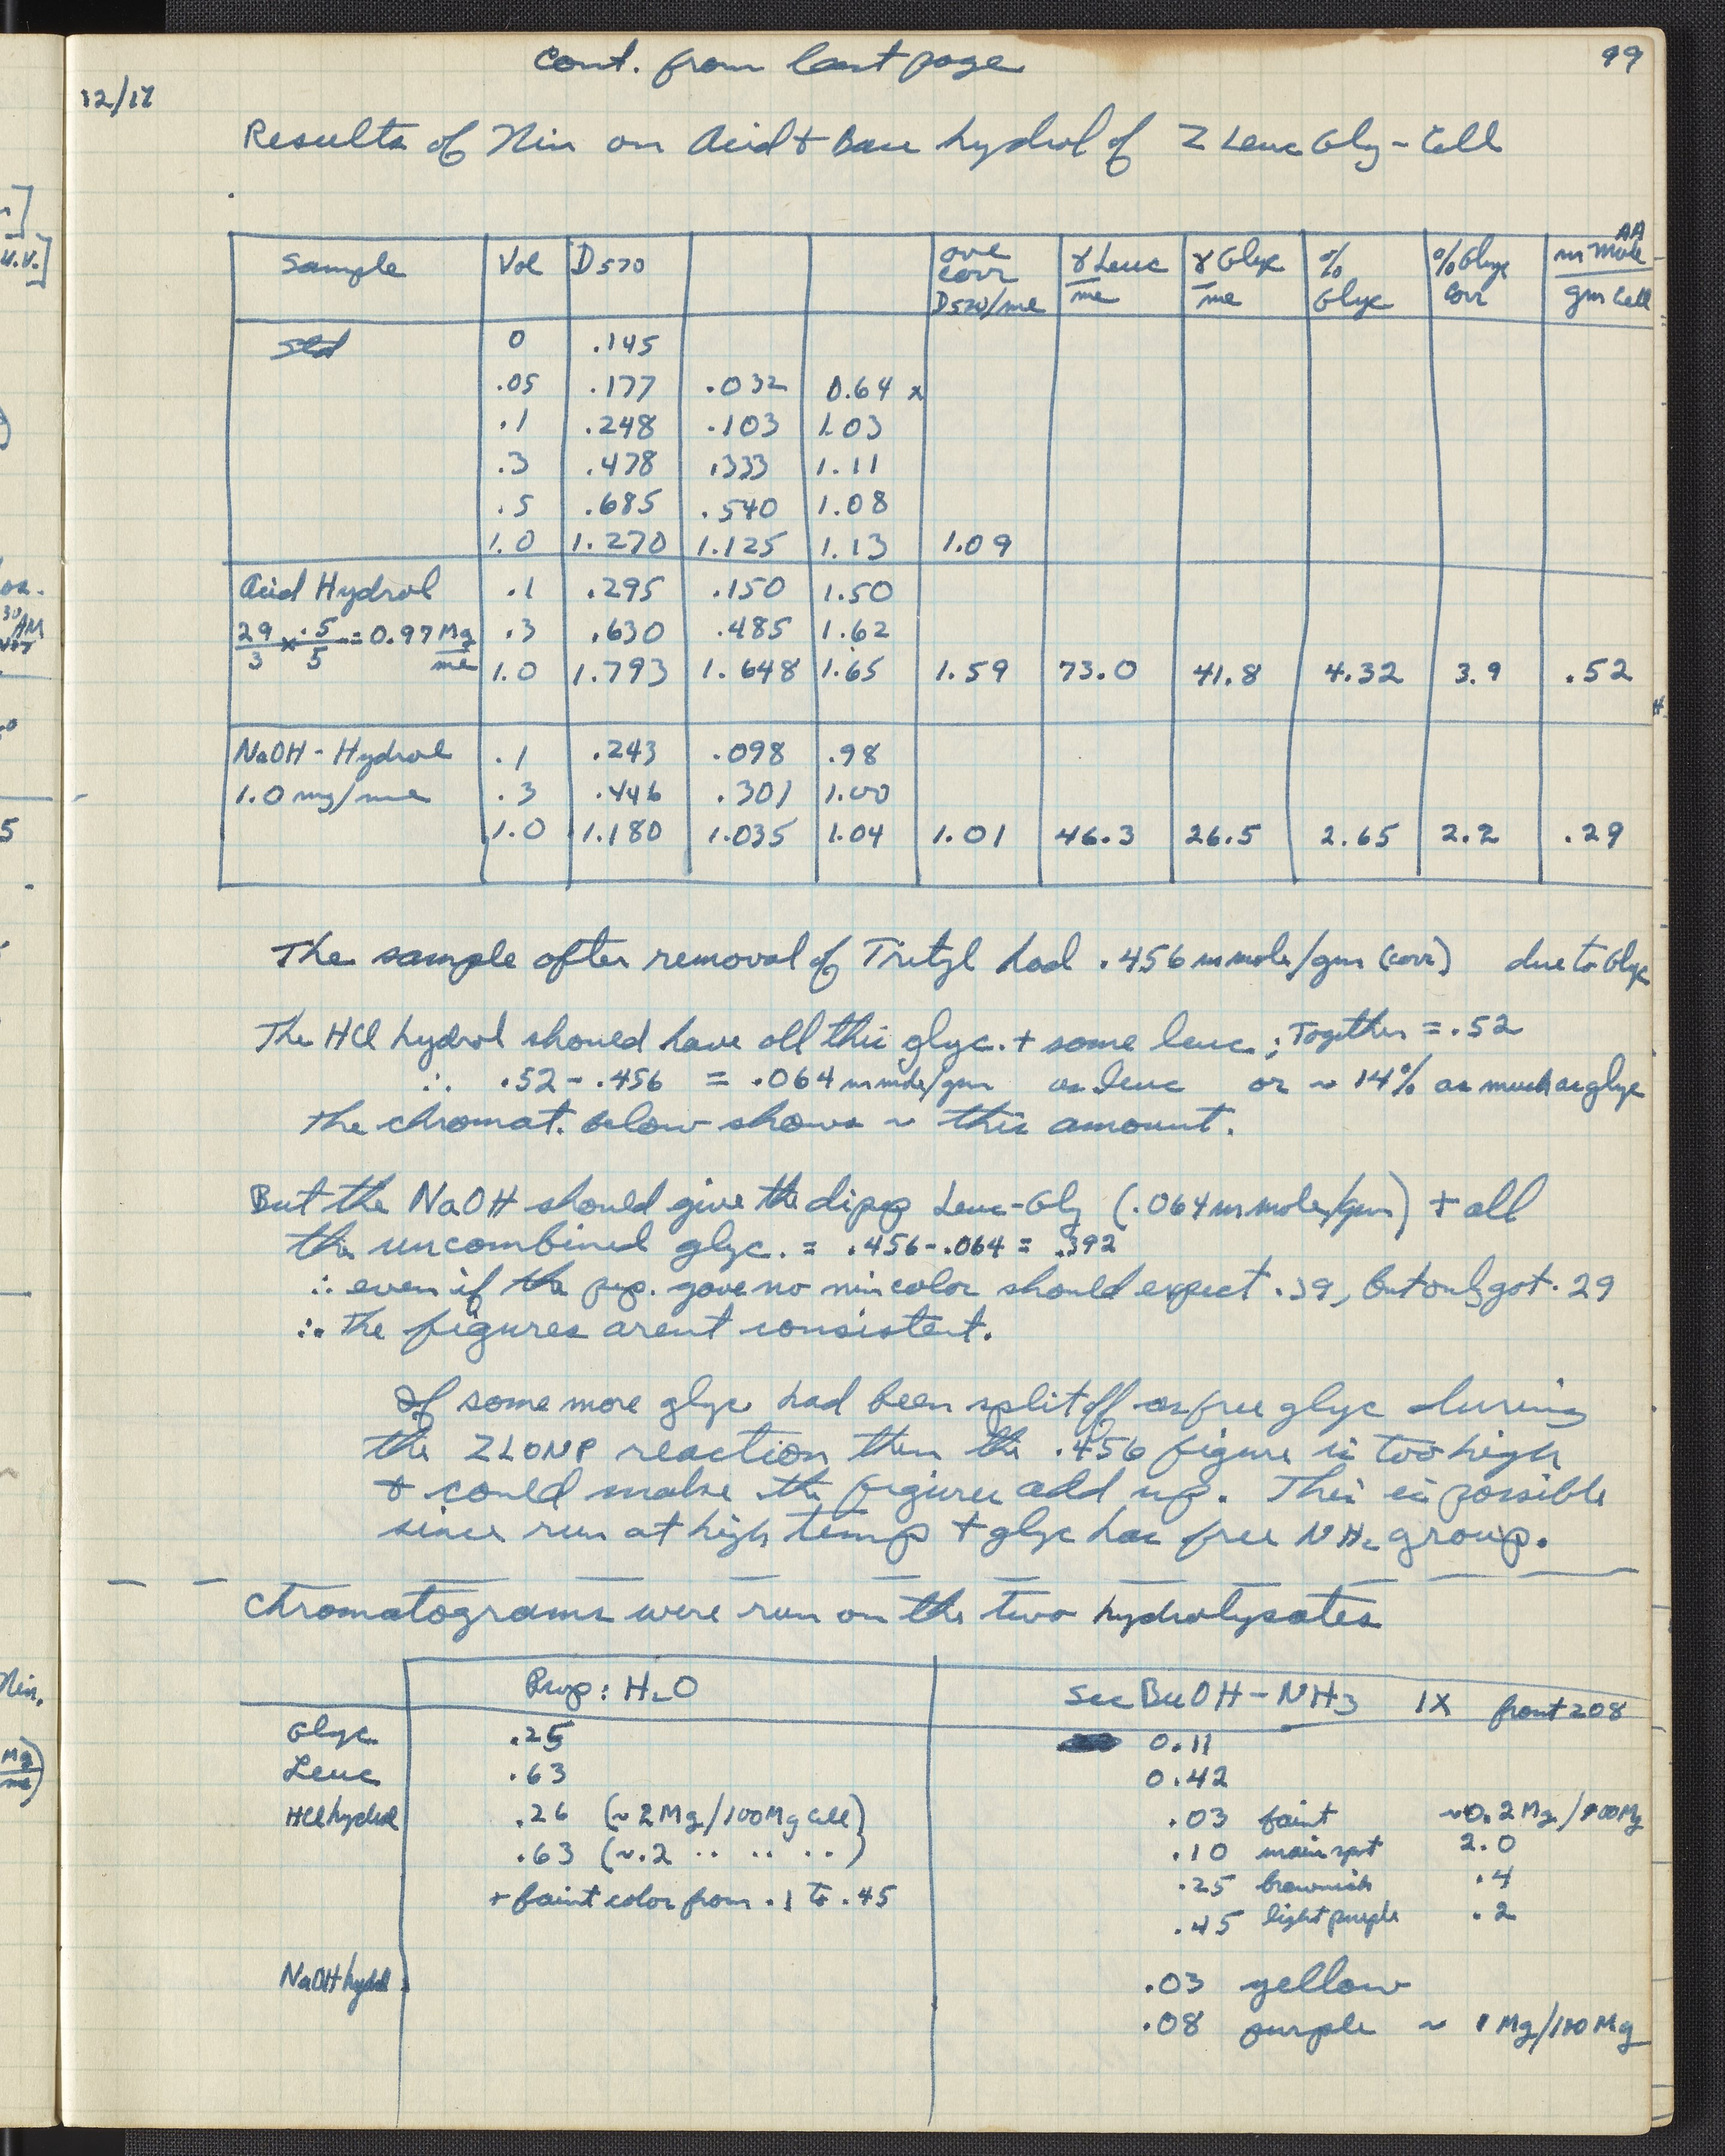 Cont. from last page
99
12/17
Results of Nin on Acid + Base hydrol of Z Leuc Gly - Cell
Sample Vol D570 ave corr D570/ml γ Leuc/ml γ Glyc/ml % Glyc % Glyc Corr m Mole AA/gm Cell
Std 0 .145
.05 .177 .032 0.64 x
.1 .248 .103 1.03
.3 .478 .333 1.11
.5 .685 .540 1.08
1.0 1.270 1.125 1.13 1.09
Acid Hydrol .1 .295 .150 1.50
29/3 x .5/5 = 0.97 Mg/ml .3 .630 .485 1.62
1.0 1.793 1.648 1.65 1.59 73.0 41.8 4.32 3.9 .52
NaOH - Hydrol .1 .243 .098 .98
1.0 mg/ml .3 .446 .301 1.00
1.0 1.180 1.035 1.04 1.01 46.3 26.5 2.65 2.2 .29
The sample after removal of Trityl had .456 m mole/gm (corr) due to Glyc
The HCl hydrol should have all this glyc. + some leuc.; Together = .52
∴ .52 - .456 = .064 m mole/gm as leuc or ~ 14% as much as glyc
The chromat. below shows ~ this amount.
But the NaOH should give the dipep Leuc-Gly (.064 m mole/gm) + all
the uncombined glyc. = .456 - .064 = .392
∴ even if the pep. gave no nin color should expect .39, but only got .29
∴ The figures arent consistent.
If some more glyc had been split off as free glyc during
the ZLONP reaction then the .456 figure is too high
+ could make the figures add up. This is possible
since run at high temp + glyc has free NH2 group.
Chromatograms were run on the two hydrolysates
Prop: H2O sec BuOH - NH3 1X front 208
Glyc .25 0.11
Leuc .63 0.42
HCl hydrol .26 (~2 Mg/100 Mg Cell) .03 faint ~0.2 Mg/100 Mg
.63 (~.2 ·· ·· ··) .10 main spot 2.0
.25 brownish .4
+ faint color from .1 to .45
.45 light purple .2
NaOH hydrol .03 yellow
.08 purple ~ 1 Mg/100 Mg